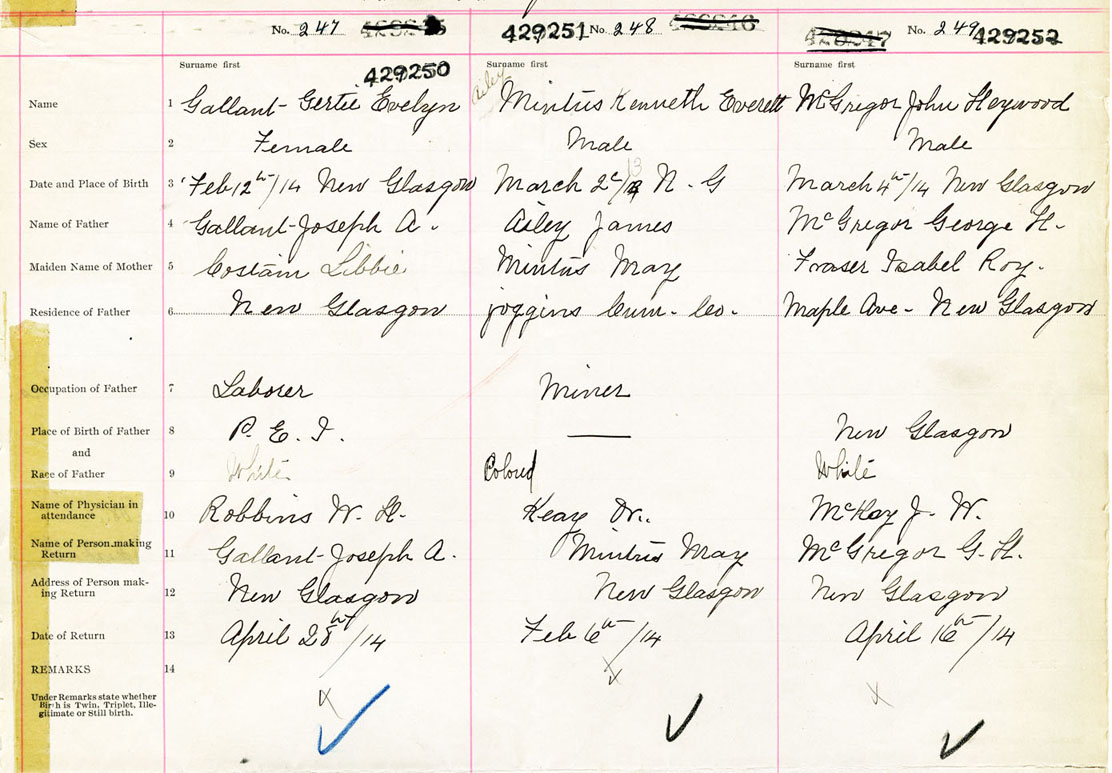 No. 247 429251 No. 248 No. 249 429252
429250
Surname first Surname first Surname first
Name 1 Gallant - Gertie Evelyn Ailey Mintus Kenneth Everett McGregor John Heywood
Sex 2 Female Male Male
Date and Place of Birth 3 Feb 12th/14 New Glasgow March 2d/13 N. G March 4th/14 New Glasgow
Name of Father 4 Gallant - Joseph A. Ailey James McGregor George H.
Maiden Name of Mother 5 Costain Libbie Mintus May Fraser Isabel Roy.
Residence of Father 6 New Glasgow joggins Cum. Co. Maple Ave - New Glasgow
Occupation of Father 7 Laborer Miner
Place of Birth of Father 8 P. E. I. — New Glasgow
and
Race of Father 9 White Colored White
Name of Physician in attendance 10 Robbins W. H. Keay Dr. McKay J. W.
Name of Person making Return 11 Gallant - Joseph A. Mintus May McGregor G. H.
Address of Person making Return 12 New Glasgow New Glasgow New Glasgow
Date of Return 13 April 28th/14 Feb 6th/14 April 16th/14
REMARKS 14
Under Remarks state whether
Birth is Twin, Triplet, Ille-
gitimate or Still birth.